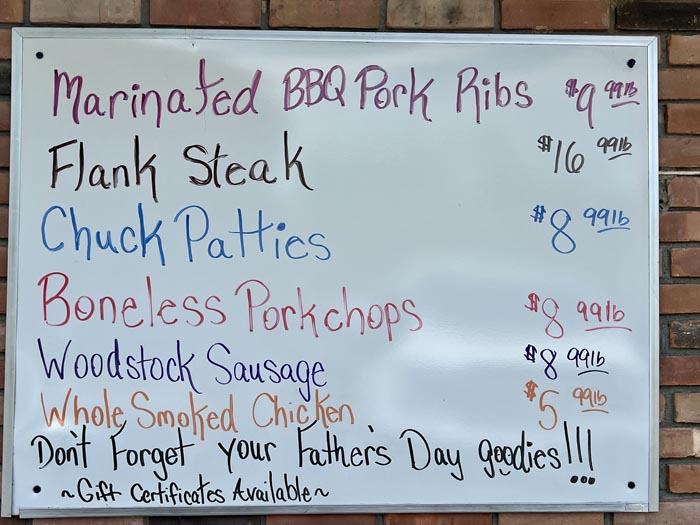 Marinated BBQ Pork Ribs $9 99lb
Flank Steak $16 99lb
Chuck Patties $8 99lb
Boneless Porkchops $8 99lb
Woodstock Sausage $8 99lb
Whole Smoked Chicken $5 99lb
Don't Forget your Father's Day goodies!!!
~Gift Certificates Available~